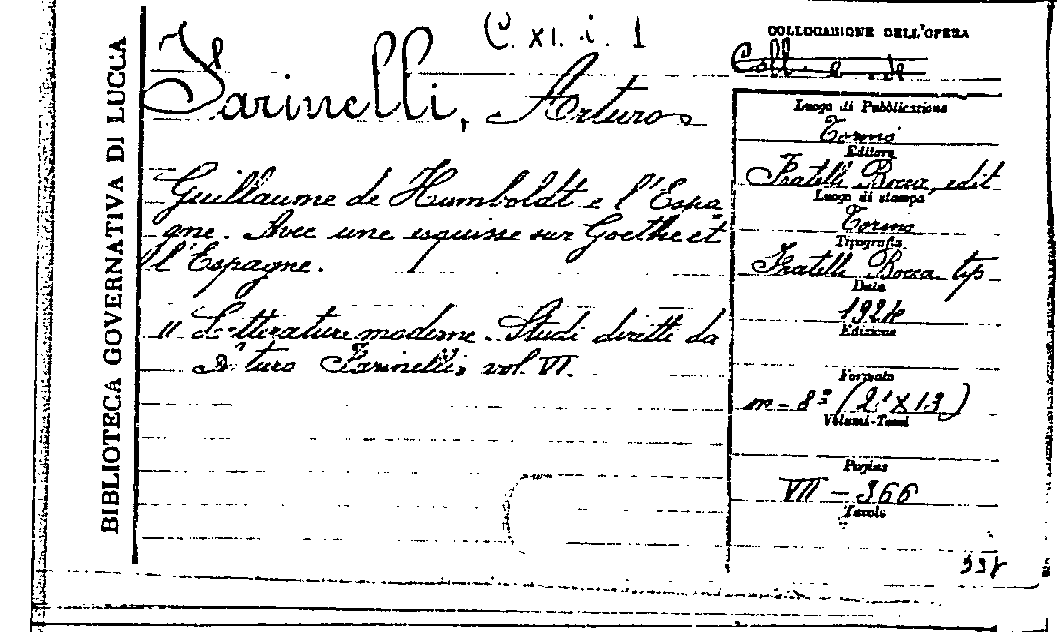 C. XI. i. 1
Farinelli, Arturo
Guillaume de Humboldt e l'Espa-
gne. Avec une esquisse sur Goethe et
l'Espagne.
Letterature moderne. Studi diretti da
Arturo Farinelli, vol. VI.
BIBLIOTECA GOVERNATIVA DI LUCCA
COLLOCAZIONE DELL'OPERA
Luogo di Pubblicazione
Torino
Editore
Fratelli Bocca, edit
Luogo di stampa
Torino
Tipografia
Fratelli Bocca tip
Data
1924
Edizione
Formato
in-8º (21X13)
Volumi-Tomi
Pagine
VII - 366
Tavole